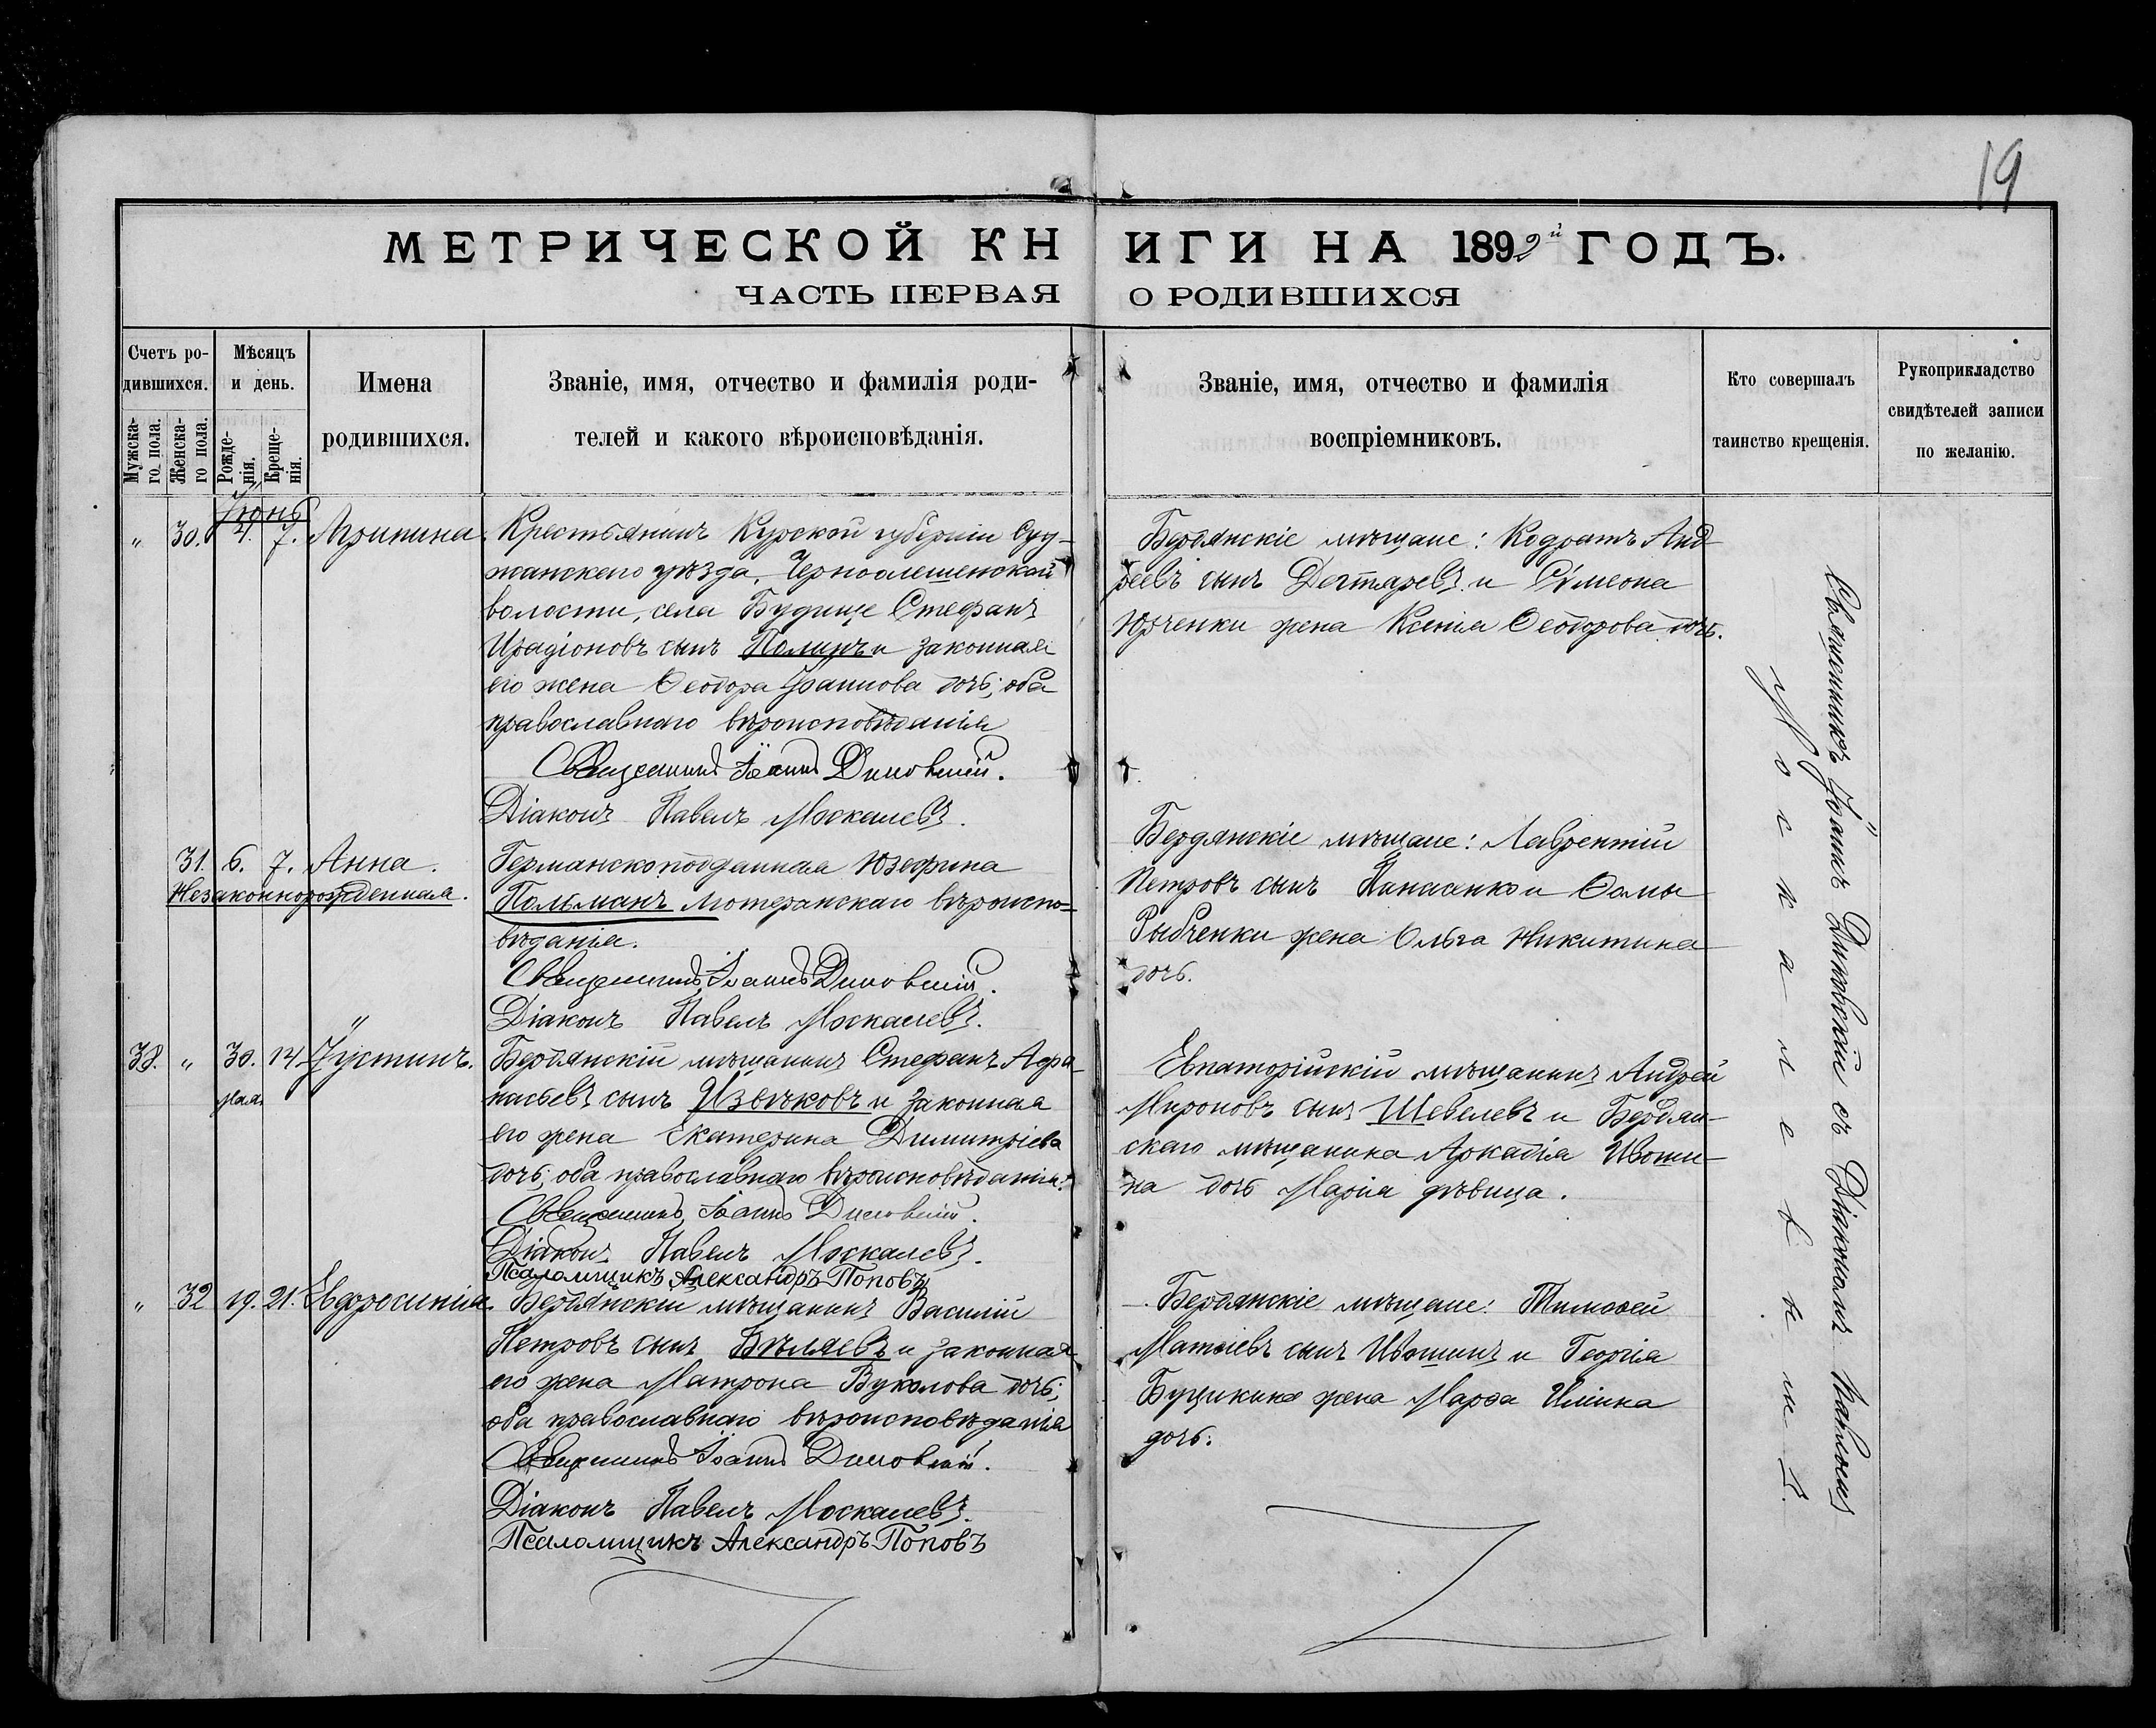 19
МЕТРИЧЕСКОЙ КНИГИ НА 1892й ГОДЪ.
ЧАСТЬ ПЕРВАЯ О РОДИВШИХСЯ
Счетъ ро-
дившихся.
Мужска-
го пола.
Женска-
го пола.
Мѣсяцъ
и день.
Рожде-
нія.
Креще-
нія.
Имена
родившихся.
Званіе, имя, отчество и фамилія роди-
телей и какого вѣроисповѣданія.
Званіе, имя, отчество и фамилія
воспріемниковъ.
Кто совершалъ
таинство крещенія.
Рукоприкладство
свидѣтелей записи
по желанію.
Іюнь
„ 30. 4. 7. Агрипина.
Крестьянинъ Курской губерніи Суд-
жанскаго уѣзда, Черноолешенской
волости, села Будище Стефанъ
Иродіоновъ сынъ Полинъ и законная
его жена Ѳеодора Іоаннова дочь; оба
православнаго вѣроисповѣданія
Священникъ Іоаннъ Диковскій.
Діаконъ Павелъ Москалевъ.
Бердянскіе мѣщане: Кодратъ Анд-
реевъ сынъ Дегтяревъ и Сѵмеона
Юрченки жена Ксенія Ѳеодорова дочь.
31. 6. 7. Анна.
Незаконнорожденная.
Германскоподданная Юзефина
Польманъ лютеранскаго вѣроиспо-
вѣданія.
Священникъ Іоаннъ Диковскій.
Діаконъ Павелъ Москалевъ.
Бердянскіе мѣщане: Лаврентій
Петровъ сынъ Панасенко и Ѳомы
Рыбченки жена Ольга Никитина
дочь.
38. „ 30. 14. Іустинъ.
мая.
Бердянскій мѣщанинъ Стефанъ Аѳа-
насьевъ сынъ Извѣковъ и законная
его жена Екатерина Димитріева
дочь; оба православнаго вѣроисповѣданія.
Священникъ Іоаннъ Диковскій.
Діаконъ Павелъ Москалевъ.
Псаломщикъ Александръ Поповъ
Евпаторійскій мѣщанинъ Андрей
Мироновъ сынъ Шевелевъ и Бердян-
скаго мѣщанина Аркадія Ивоши-
на дочь Марія дѣвица.
„ 32 19. 21. Евфросинія.
Бердянскій мѣщанинъ Василій
Петровъ сынъ Бѣляевъ и законная
его жена Матрона Вуколова дочь;
оба православнаго вѣроисповѣданія
Священникъ Іоаннъ Диковскій.
Діаконъ Павелъ Москалевъ.
Псаломщикъ Александръ Поповъ
Бердянскіе мѣщане: Тимоѳей
Матѳіевъ сынъ Ивошинъ и Георгія
жена Марѳа Иліина
дочь.
Священникъ Іоаннъ Диковскій съ Діакономъ Павломъ
Москалевымъ.